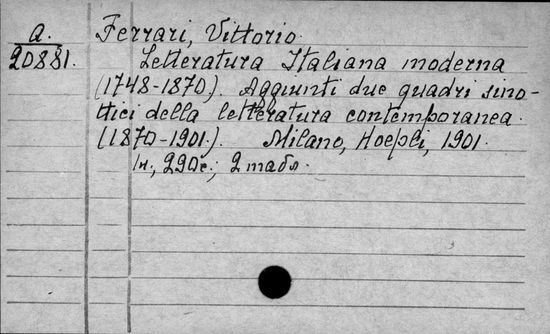 a.
20881.
Ferrari, Vittorio.
Letteratura Italiana moderna
(1748-1870). Aggiunti due quadri sino-
ttici della letteratura contemporanea.
(1870-1901). Milano, Hoepli, 1901.
290c.; 2